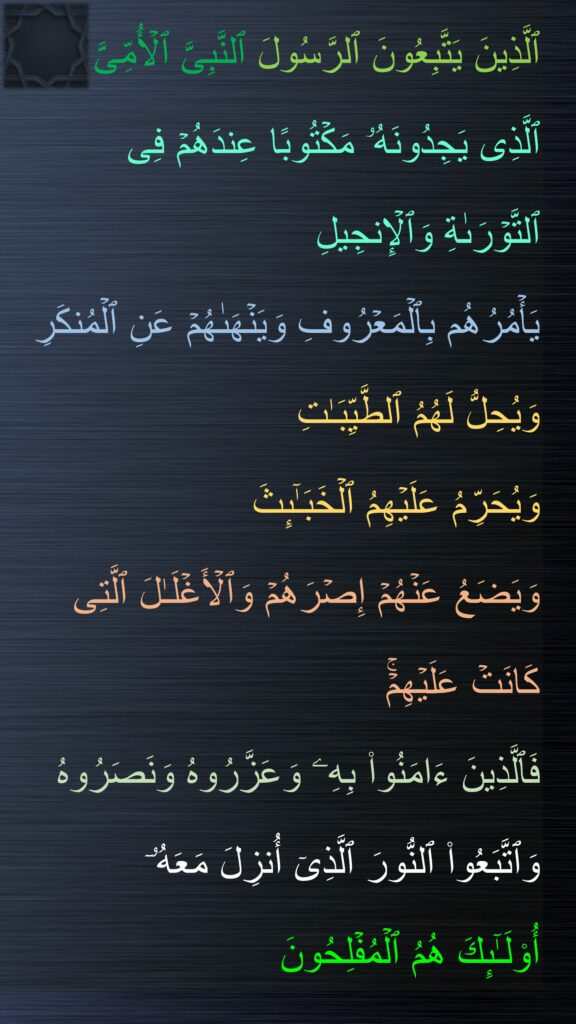 ٱلَّذِينَ يَتَّبِعُونَ ٱلرَّسُولَ ٱلنَّبِىَّ ٱلْأُمِّىَّ
ٱلَّذِى يَجِدُونَهُۥ مَكْتُوبًا عِندَهُمْ فِى
ٱلتَّوْرَىٰةِ وَٱلْإِنجِيلِ
يَأْمُرُهُم بِٱلْمَعْرُوفِ وَيَنْهَىٰهُمْ عَنِ ٱلْمُنكَرِ
وَيُحِلُّ لَهُمُ ٱلطَّيِّبَـٰتِ
وَيُحَرِّمُ عَلَيْهِمُ ٱلْخَبَـٰٓئِثَ
وَيَضَعُ عَنْهُمْ إِصْرَهُمْ وَٱلْأَغْلَـٰلَ ٱلَّتِى
كَانَتْ عَلَيْهِمْ ۚ
فَٱلَّذِينَ ءَامَنُوا۟ بِهِۦ وَعَزَّرُوهُ وَنَصَرُوهُ
وَٱتَّبَعُوا۟ ٱلنُّورَ ٱلَّذِىٓ أُنزِلَ مَعَهُۥٓ
أُو۟لَـٰٓئِكَ هُمُ ٱلْمُفْلِحُونَ